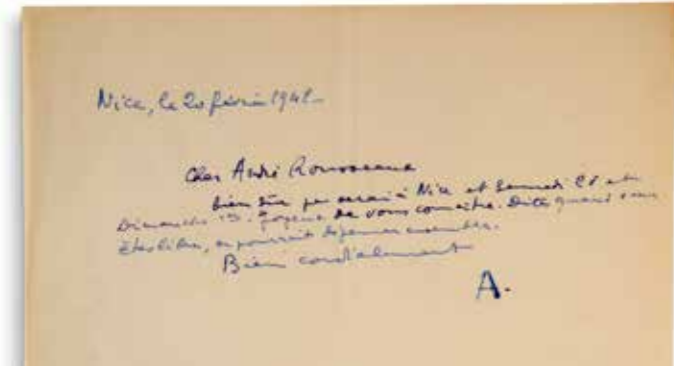 Nice, le 20 février 1942
Cher André Rousseaux
bien sûr je serai à Nice et Samedi 28 et
Dimanche 1. Joyeux de vous connaître. Dites quand vous
êtes libre, on pourrait déjeuner ensemble.
Bien cordialement
A.